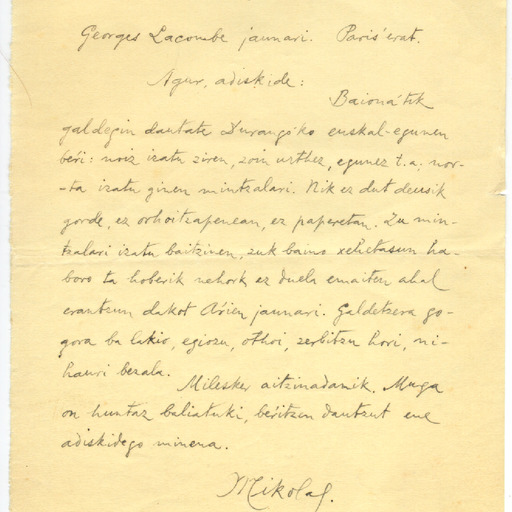 Georges Lacombe jaunari. Paris'erat.
Agur, adiskide:
Baiona'tik
galdegin dautate Durango'ko euskal-egunen
béŕi: noiz izatu ziren, zoin urthez, egunez t.a., nor-
-ta izatu ginen mintzalari. Nik ez dut deusik
gorde, ez orhoitzapenean, ez paperetan. Zu min-
tzalari izatu baitzinen, zuk baino xehetasun ha-
boro ta hoberik nehork ez duela emaiten ahal
erantzun dakot Arien jaunari. Galdetzera go-
gora ba lakio, egiozu, othoi, zerbitzu hori, ni-
hauri bezala.
Milesker aitzinadanik. Muga
on huntaz baliatuki, beŕitzen dautzut ene
adiskidego minena.
Mikolas.